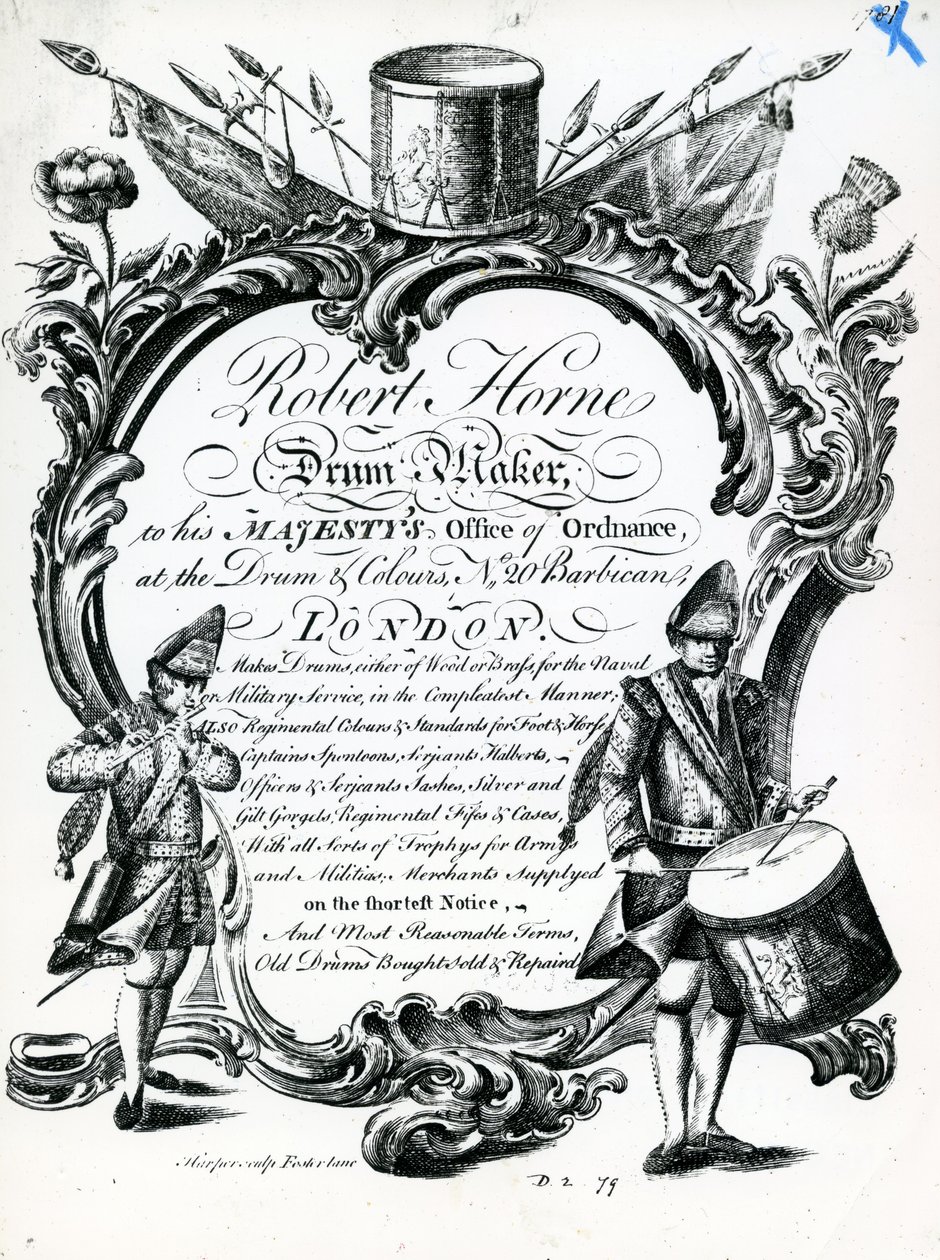 1781
Robert Horne
Drum Maker,
to his MAJESTY'S Office of Ordnance,
at the Drum & Colours, No, 20 Barbican,
LONDON.
Makes Drums, either of Wood or Braſs, for the Naval
or Military Service, in the Compleatest Manner;
ALSO Regimental Colours & Standards for Foot & Horse
Captains Spontoons, Serjeants Halberts,
Officers & Serjeants Sashes, Silver and
Gilt Gorgets, Regimental Fifes & Cases,
With all Sorts of Trophys for Armys
and Militias; Merchants Supplyed
on the ſhorteſt Notice,
And Most Reasonable Terms,
Old Drums Bought Sold & Repaird
Harper sculp Foster lane
D. 2 79